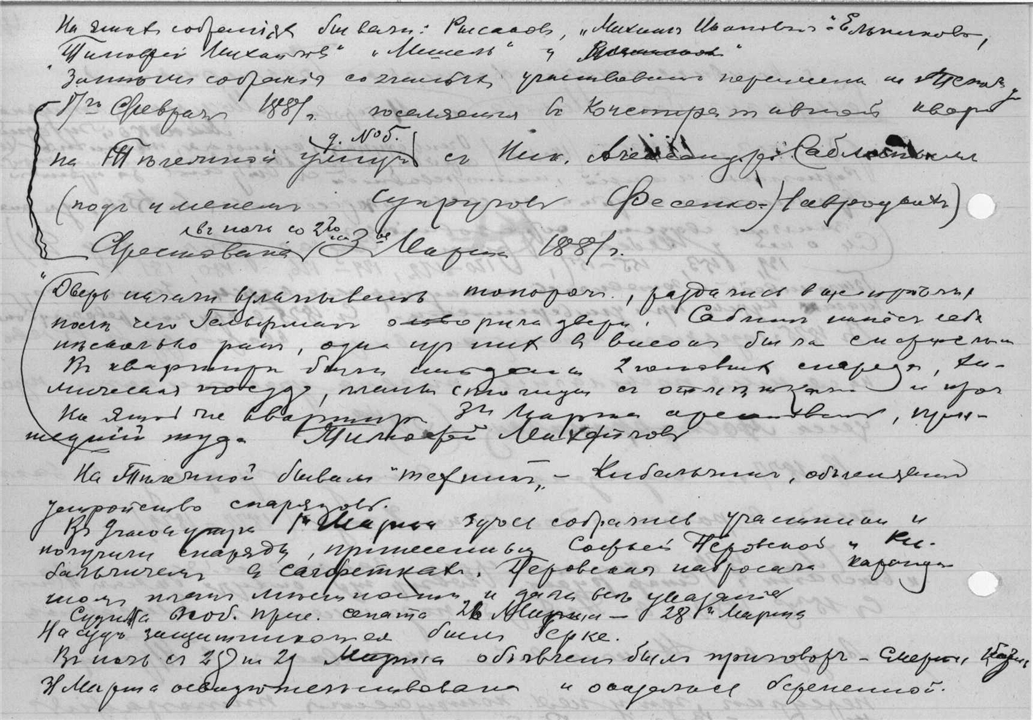 На этих собраниях бывали: Рысаков, „Михаил Иванович" - Ельников,
"Тимофей Михайлов" „Мишель" и
Затем собрания сознательн участвовавш перенесены на Тележ
17го Февраля 1881г. поселяется в Конспиративной квар
д. №5.
на Тележной улице с Ник. Александр. Саблиным
(под именем супругов Фесенко-Навроцких)
в ночь со 2го на 3
Арестована Марта 1881г.
"Дверь начали взламывать топором, раздались выстрелы,
после чего Гельфман отворила дверь. Саблин нанес себе
несколько ран, одна из них в висок была смертельна
В квартире были найдены 2 готовых снаряда, хи-
мическая посуда, планы столицы с отметками и проч
На этой же квартире 3го Марта арестован, приш-
шедший туда Тимофей Михайлов
На Тележной бывал "техник" - Кибальчич, объяснял
устройство снарядов.
В 9 часов утра 1го Марта здесь собрались участники и
получили снаряды, принесенные Софьей Перовской и Ки-
бальчичем в салфетках. Перовская набросала каранда
шом план местности и дала всем указания
Судила Особ. прис. сената 26 Марта - 28го Марта
На суде защитником был Герке.
В ночь с 28 на 29 Марта объявлен был приговор - смертн казнь
Марта освидетельствована и оказалась беременной.